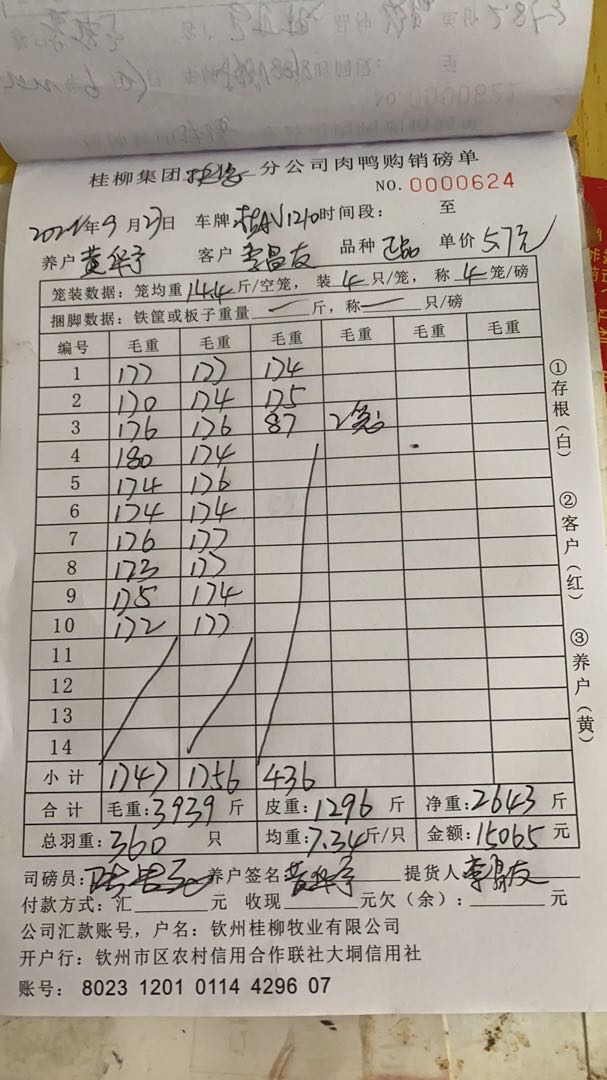 桂柳集团 分公司肉鸭购销磅单
NO. 0000624
2021年9月27日 车牌 桂AV1210 时间段： 至
养户 黄华亨 客户 李昌友 品种 正品 单价 5.7元
笼装数据：笼均重14.4斤/空笼，装4只/笼，称4笼/磅
捆脚数据：铁筐或板子重量一斤，称一只/磅
编号 毛重 毛重 毛重 毛重 毛重 毛重
1 177 177 174
2 170 174 175
3 176 176 87 2笼
4 180 174
5 174 176
6 174 174
7 176 177
8 173 177
9 175 174
10 172 177
11
12
13
14
小计 1747 1756 436
合计 毛重：3939斤 皮重：1296斤 净重：2643斤
总羽重：360 只 均重：7.34斤/只 金额：15065元
司磅员： 养户签名 黄华亨 提货人 李昌友
付款方式：汇 元 收现 元欠（余）： 元
公司汇款账号，户名：钦州桂柳牧业有限公司
开户行：钦州市区农村信用合作联社大垌信用社
账号： 8023 1201 0114 4296 07
①存根（白）
②客户（红）
③养户（黄）